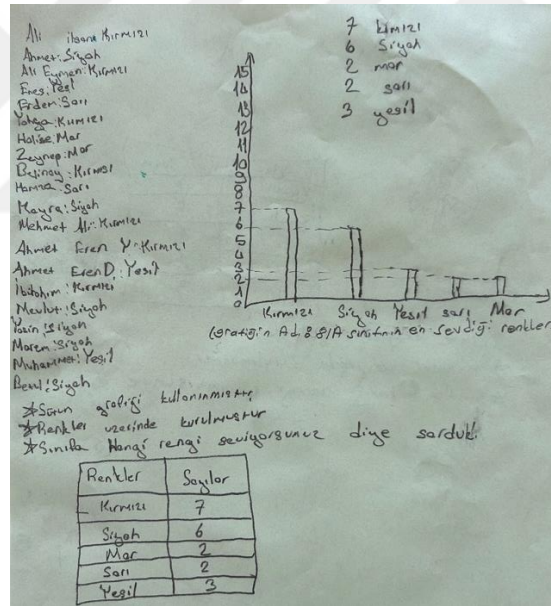 Ali ihsan: Kırmızı
Ahmet: Siyah
Ali Eymen: Kırmızı
Enes: Yeşil
Erdem: Sarı
Kırmızı
Halise: Mor
Zeynep: Mor
Belinay: Kırmızı
Hamza: Sarı
Mayra: Siyah
Mehmet Ali: Kırmızı
Ahmet Eren Y: Kırmızı
Ahmet Eren D: Yeşil
İbrahim: Kırmızı
Mevlut: Siyah
Yasin: Siyah
Marem: Siyah
Muhammet: Yeşil
Berat: Siyah
7 kırmızı
6 Siyah
2 mor
2 sarı
3 yeşil
15
14
13
12
11
10
9
8
7
6
5
4
3
2
1
0
Kırmızı Siyah Yeşil sarı Mor
(Grafiğin Adı: 8/A sınıfının en sevdiği renkler
*Sütun grafiği kullanınmıştır
*Renkler üzerinde kurulmuştur
*Sınıfta Hangi rengi seviyorsunuz diye sorduk.
Renkler Sayılar
Kırmızı 7
Siyah 6
Mor 2
Sarı 2
Yeşil 3